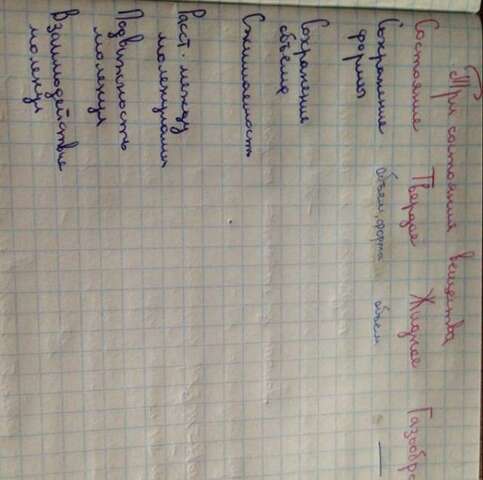 Три состояния вещества
Состояние Твёрдое Жидкое Газообра
Сохранение объем, форма объем —
формы
Сохранение
объёма
Сжимаемость
Раст. между
молекулами
Подвижность
молекул
Взаимодействие
молекул